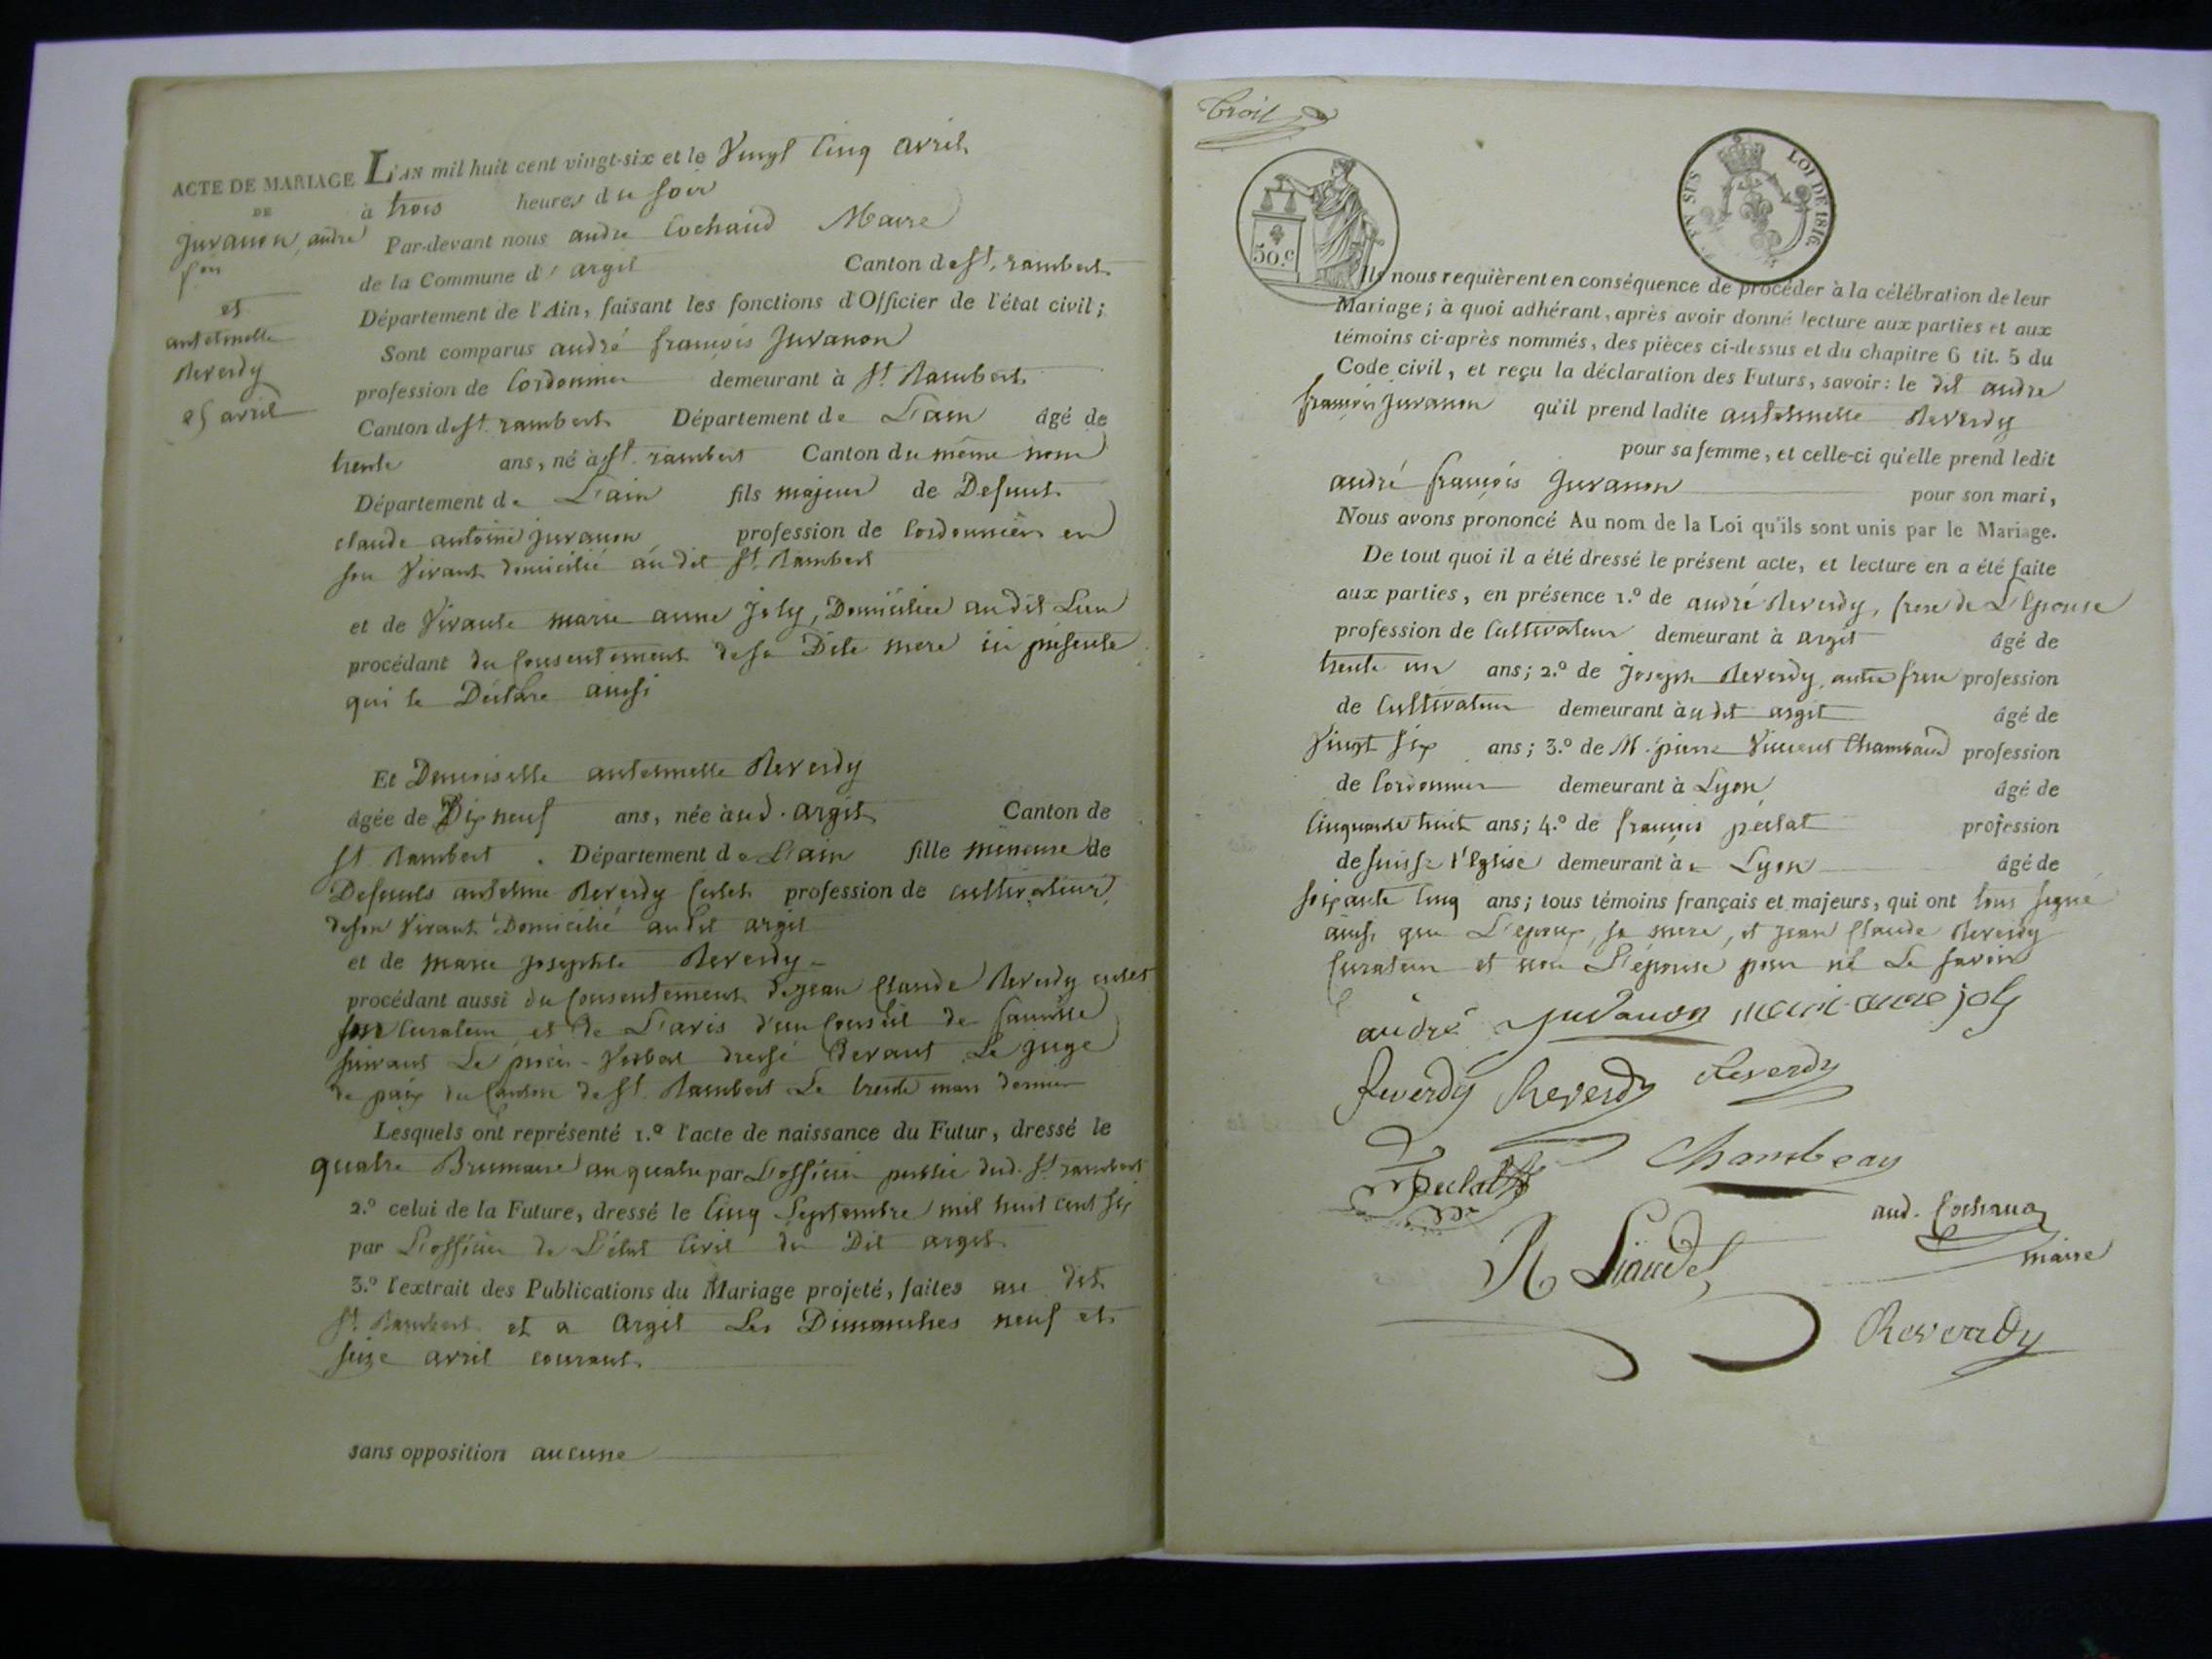 ACTE DE MARIAGE
DE
Juvanon, andré
et
anthelmette
Reverdy
25 avril
L'AN mil huit cent vingt-six et le Vingt Cinq avril
à trois heures du soir
Par-devant nous andré Cochaud Maire
de la Commune d'argit Canton de St. rambert
Département de l'Ain, faisant les fonctions d'Officier de l'état civil;
Sont comparus andré françois Juvanon
profession de Cordonnier demeurant à St Rambert
Canton de St. rambert Département de L'ain âgé de
trente ans, né à St. rambert Canton du même nom
Département de L'ain fils majeur de Defunt
claude antoine juvanon profession de Cordonnier en
son Vivant domicilié au dit St. Rambert
et de Vivante marie anne joly, Domiciliée audit Lieu
procédant du Consentement de sa Dite mere ici présente
qui le Déclare ainsi
Et Demoiselle anthelmette Reverdy
âgée de Dix neuf ans, née aud. argit Canton de
St Rambert. Département de L'ain fille mineure de
Defunts anthelme Reverdy profession de cultivateur,
de son Vivant Domicilié audit argit
et de marie josephte Reverdy
procédant aussi du Consentement de jean Claude Reverdy
son Curateur et de L'avis d'un Conseil de famille
suivant Le procès-Verbal dressé Devant Le juge
de paix du Canton de St. Rambert Le trente mars dernier
Lesquels ont représenté 1.º l'acte de naissance du Futur, dressé le
quatre Brumaire an quatre par L'officier public dud. St. rambert
2.º celui de la Future, dressé le Cinq Septembre mil huit cent six
par L'officier de L'état Civil du Dit argit
3.º l'extrait des Publications du Mariage projeté, faites au dit
St. Rambert et a Argit Les Dimanches neuf et
seize avril courant
sans opposition aucune
50.c
LOI DE 1816.
Ils nous requièrent en conséquence de procéder à la célébration de leur
Mariage; à quoi adhérant, après avoir donné lecture aux parties et aux
témoins ci-après nommés, des pièces ci-dessus et du chapitre 6 tit. 5 du
Code civil, et reçu la déclaration des Futurs, savoir: le dit andre
françois juvanon qu'il prend ladite anthelmette Reverdy
pour sa femme, et celle-ci qu'elle prend ledit
andré françois Juvanon pour son mari,
Nous avons prononcé Au nom de la Loi qu'ils sont unis par le Mariage.
De tout quoi il a été dressé le présent acte, et lecture en a été faite
aux parties, en présence 1.º de andré Reverdy, frere de L'Epouse
profession de Cultivateur demeurant à argit âgé de
trente un ans; 2.º de Joseph Reverdy, autre frere profession
de Cultivateur demeurant audit argit âgé de
Vingt Six ans; 3.º de M. pierre Vincent Chambaud profession
de Cordonnier demeurant à Lyon âgé de
Cinquante huit ans; 4.º de françois péclat profession
de suisse d'Eglise demeurant à Lyon âgé de
soixante Cinq ans; tous témoins français et majeurs, qui ont tous signé
ainsi que L'epoux, sa mere, et jean Claude Reverdy
Curateur et non L'épouse pour ne Le savoir
andré juvanon marie anne joly
Reverdy Reverdy Reverdy
Peclat Chambeau
aud. Cochaud
maire
Liaudet
Reverdy